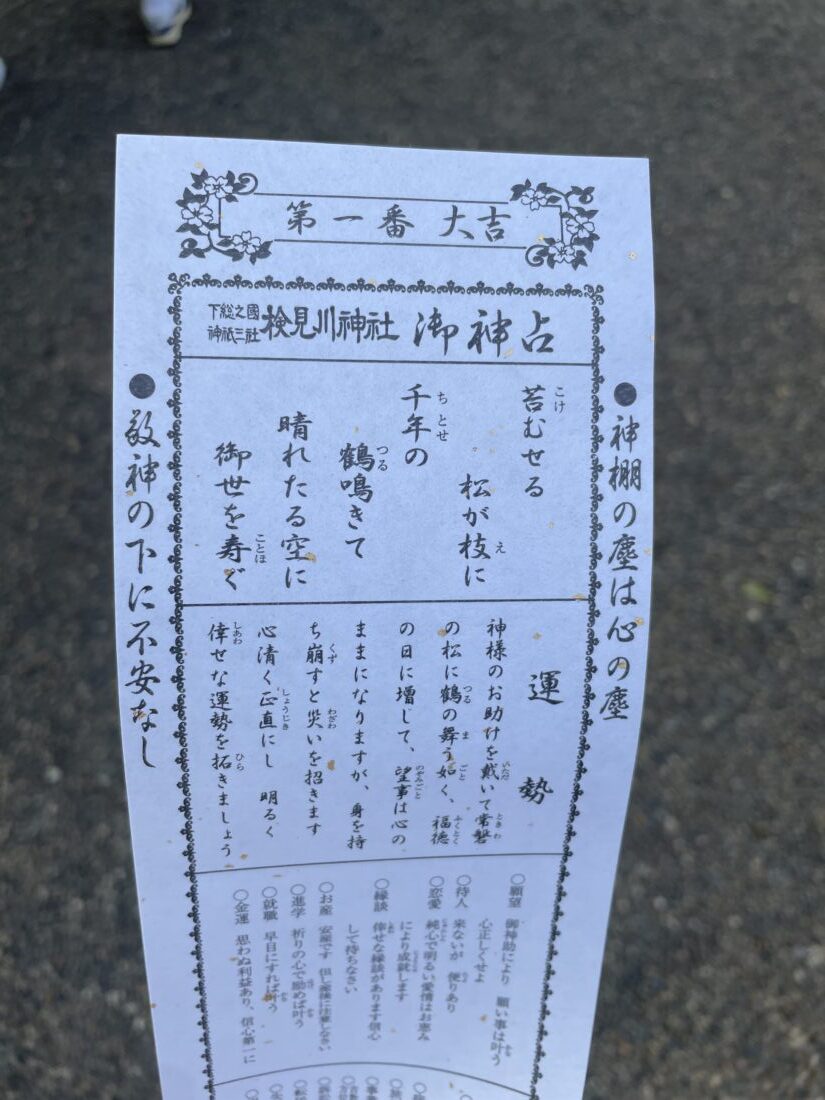 第一番 大吉
下総之國
神祇三社
検見川神社 御神占
●神棚の塵は心の塵
苔むせる
松が枝に
千年の
鶴鳴きて
晴れたる空に
御世を寿ぐ
●敬神の下に不安なし
運勢
神様のお助けを戴いて常磐
の松に鶴の舞う如く、福徳
の日に増して、望事は心の
ままになりますが、身を持
ち崩すと災いを招きます
心清く正直にし 明るく
倖せな運勢を拓きましょう
○願望 御神助により 願い事は叶う
心正しくせよ
○待人 来ないが 便りあり
○恋愛 純心で明るい愛情はお恵み
により成就します
○縁談 倖せな縁談があります信心
して待ちなさい
○お産 安産です 但し産後に注意しなさい
○進学 祈りの心で励めば叶う
○就職 早目にすれば叶う
○金運 思わぬ利益あり、信心第一に